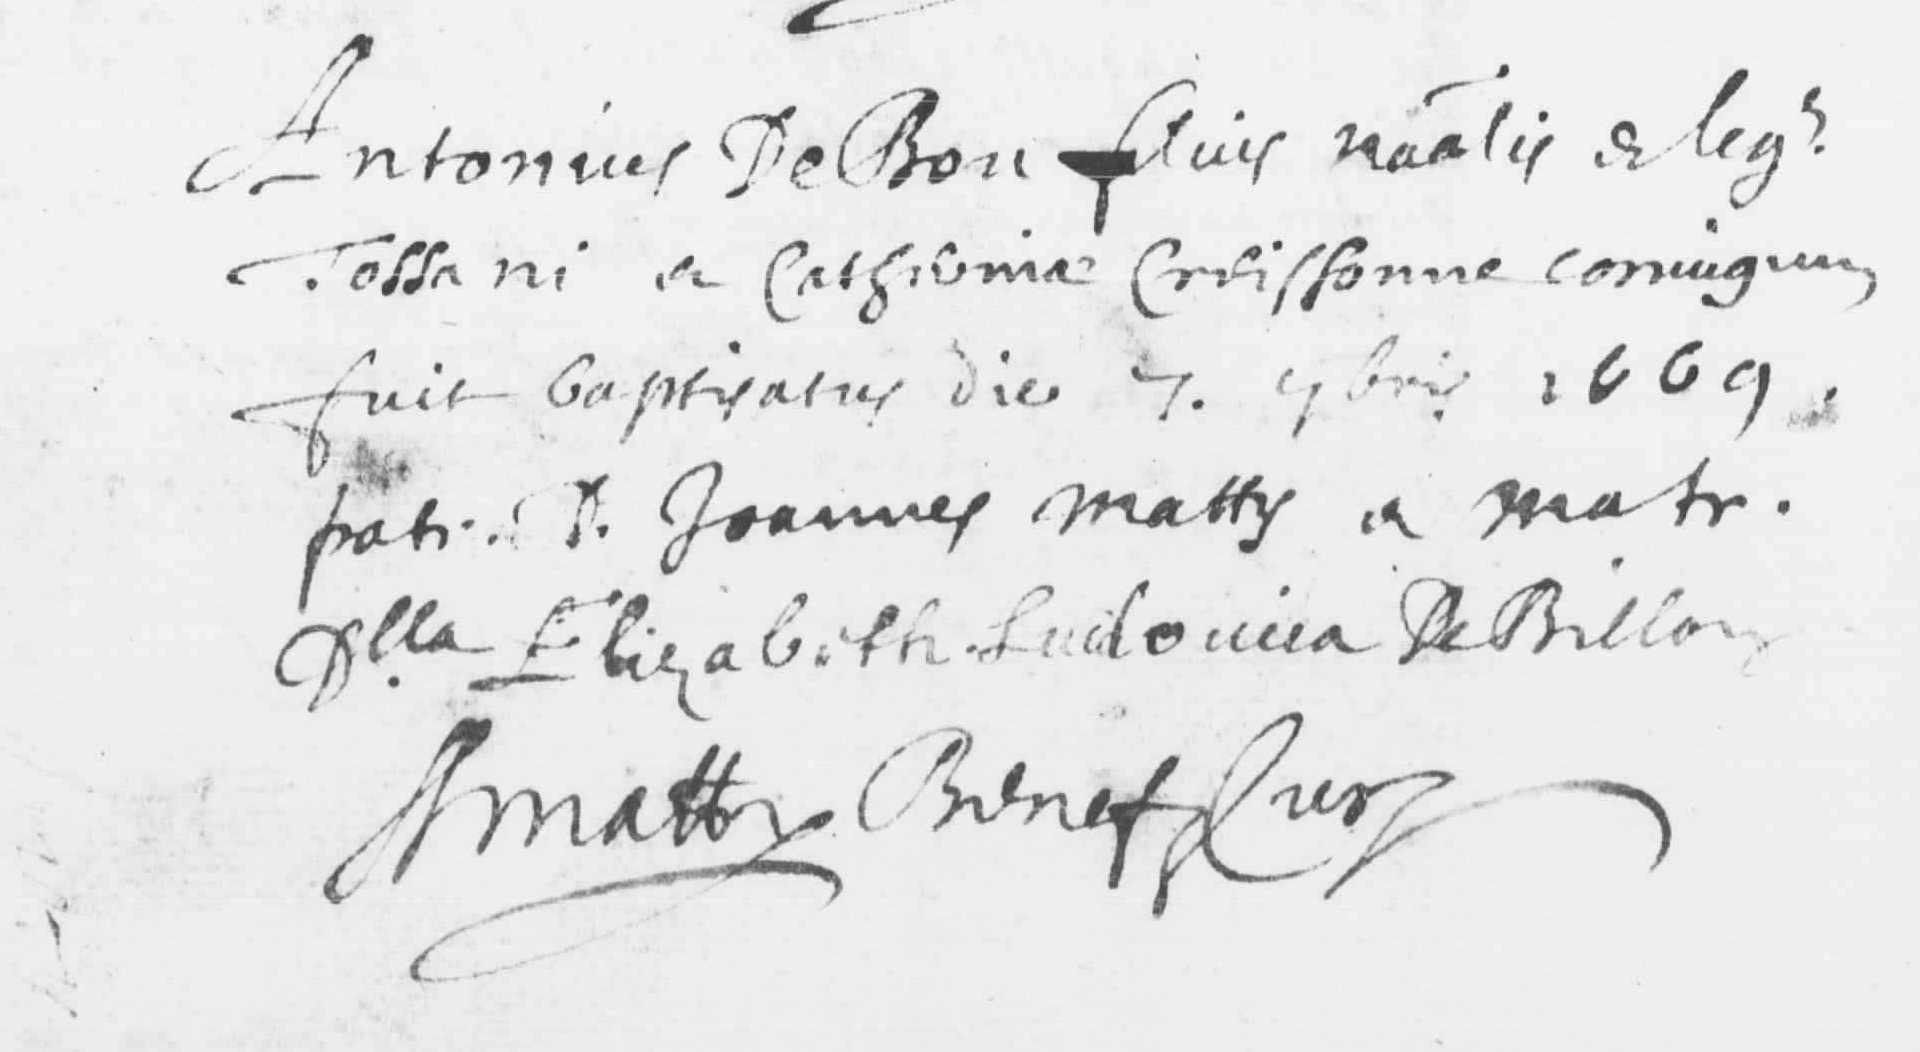 Antonius De Bon filius naālis & legr.
Tossani et Catherinæ Creissonne coniugum
fuit baptisatus die 7. 9bris 1669.
patr. D. Joannes Matty et matr.
Dlla Elizabeth Ludouica De Billon
Matty Benef. Cur